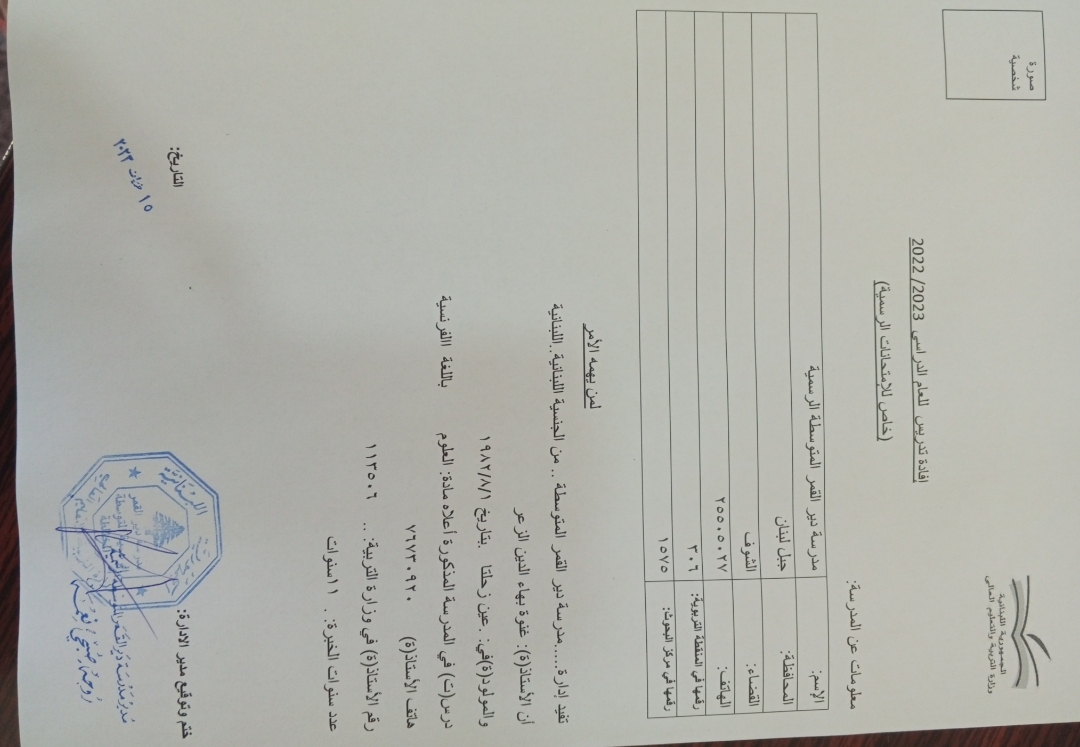 الجمهورية اللبنانية
وزارة التربية والتعليم العالي
صورة
شخصية
إفادة تدريس للعام الدراسي 2023/ 2022
(خاص للإمتحانات الرسمية)
معلومات عن المدرسة:
الإسم: مدرسة دير القمر المتوسطة الرسمية
المحافظة: جبل لبنان
القضاء: الشوف
الهاتف: ٢٥٥٠٥٠٢٧
رقمها في المنقطة التربوية: ٣٠٦
رقمها في مركز البحوث: ١٥٧٥
لمن يهمه الأمر
تفيد إدارة.....مدرسة دير القمر المتوسطة .. من الجنسية اللبنانية..اللبنانية
أن الأستاذ(ة): غنوة بهاء الدين الزعر
والمولود(ة)في: . عين زحلتا .بتاريخ ١٩٨٢/٨/١
درس(ت) في المدرسة المذكورة أعلاه مادة: العلوم باللغة االفرنسية
هاتف الأستاذ(ة) ٧٦٧٣٠٩٢٠
رقم الأستاذ(ة) في وزارة التربية: .. ١١٣٥٠٦
عدد سنوات الخبرة: . ١١سنوات
ختم وتوقيع مدير الادارة: التاريخ:
١٥ حزيران ٢٠٢٣
اللبنانية
دير القمر